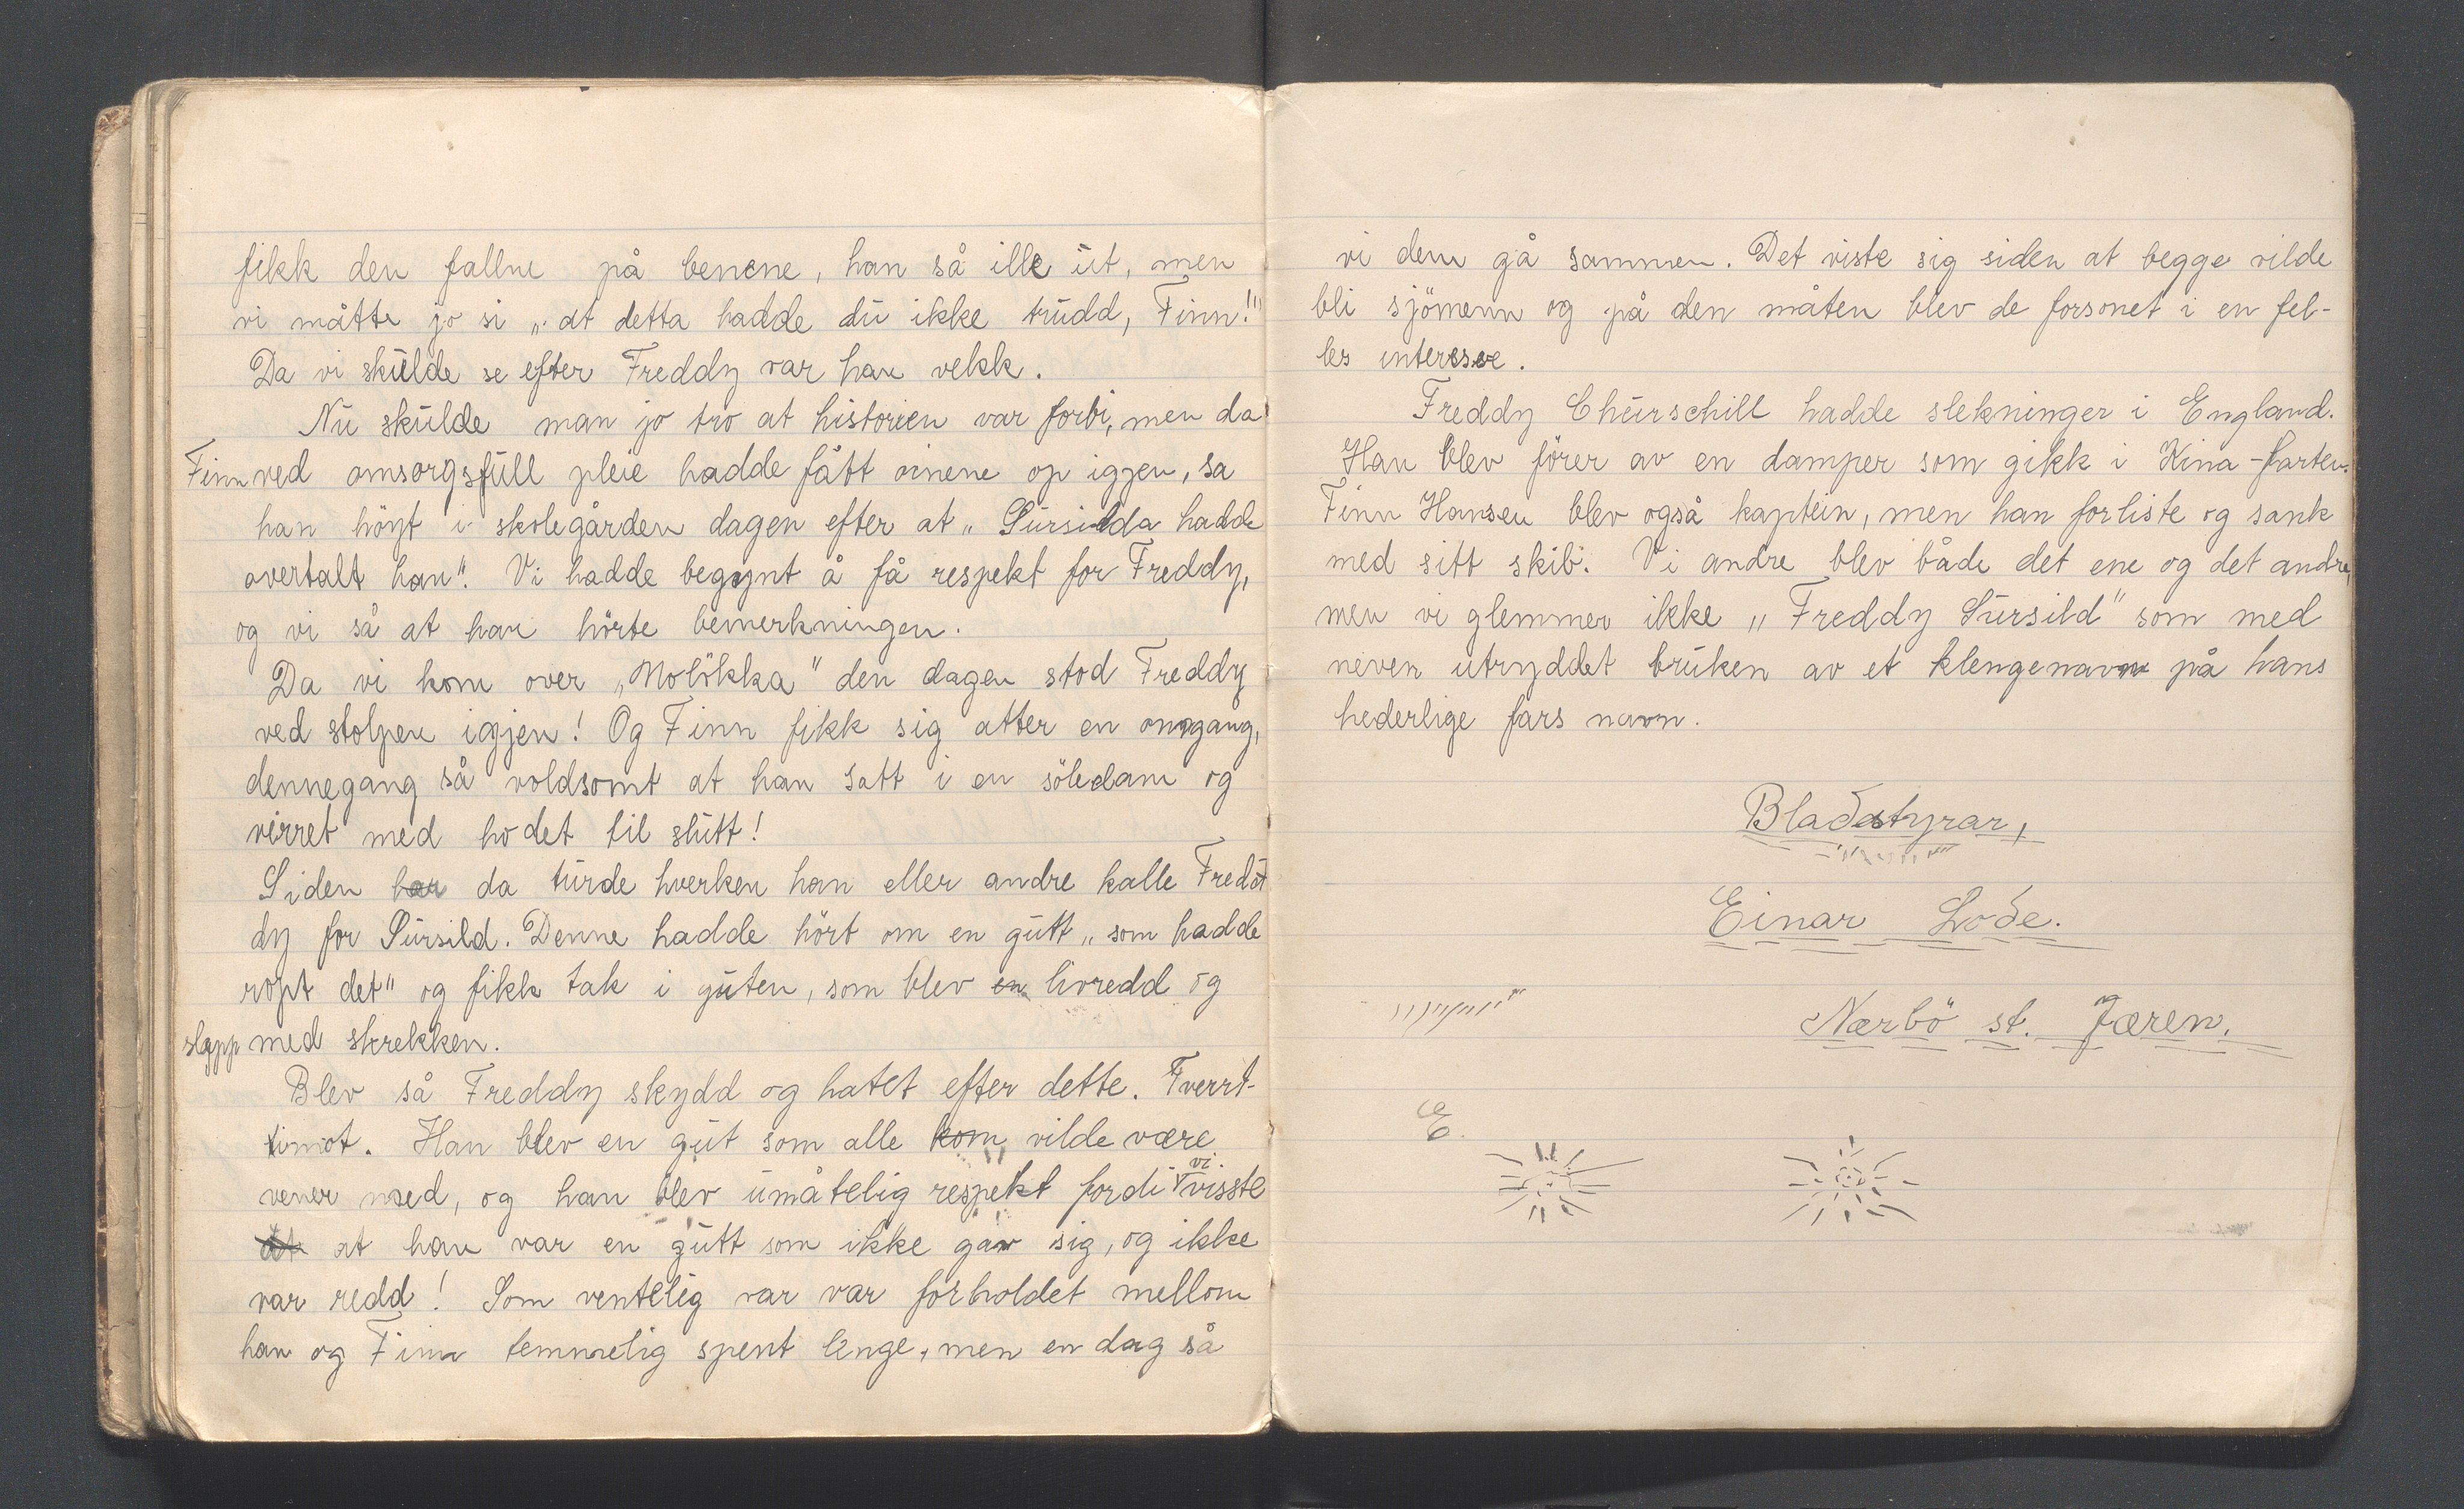 fikk den fallne på benene, han så ille ut, men
vi måtte jo si „at detta hadde du ikke trudd, Finn!"
Da vi skulde se efter Freddy var han vekk.
Nu skulde man jo tro at historien var forbi, men da
Finn ved omsorgsfull pleie hadde fått öinene op igjen, sa
han höyt i skolegården dagen efter at „Sursilda hadde
overtalt han". Vi hadde begynt å få respekt for Freddy,
og vi så at han hörte bemerkningen.
Da vi kom over „Molökka" den dagen stod Freddy
ved stolpen igjen! Og Finn fikk sig atter en omgang,
dennegang så voldsomt at han satt i en söledam og
virret med hodet til slutt!
Siden har da turde hverken han eller andre kalle Fred
dy for Sursild. Denne hadde hört om en gutt „som hadde
ropt det" og fikk tak i guten, som blev en livredd og
slapp med skrekken.
Blev så Freddy skydd og hatet efter dette. Tverrt-
imot. Han blev en gut som alle kom vilde være
vener med, og han blev umåtelig respekt fordi vi visste
at at han var en gutt som ikke gav sig, og ikke
var redd! Som ventelig var var forholdet mellom
han og Finn temmelig spent lenge, men en dag så
vi dem gå sammen. Det viste sig siden at begge vilde
bli sjömenn og på den måten blev de forsonet i en fel-
les interesse.
Freddy Churschill hadde slekninger i England.
Han blev förer av en damper som gikk i Kina-farten.
Finn Hansen blev også kaptein, men han forliste og sank
med sitt skib. Vi andre blev både det ene og det andre,
men vi glemmer ikke „Freddy Sursild" som med
neven utryddet bruken av et klengenavn på hans
hederlige fars navn.
Bladstyrar,
Einar Lode.
Nærbö st. Jæren.
E.